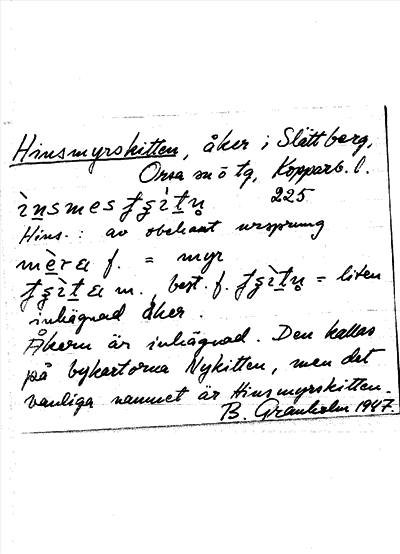 Hinsmyrskitten, åker i Slättberg,
Orsa sn ö tg, Kopparb. l.
ìnsmesʧìtn̥ 225
Hins.: av obekant ursprung
mèra f. = myr
best. f. = liten
inhägnad åker.
Åkern är inhägnad. Den kallas
på bykartorna Nykitten, men det
vanliga namnet är Hinsmyrskitten.
B. Granholm 1947.